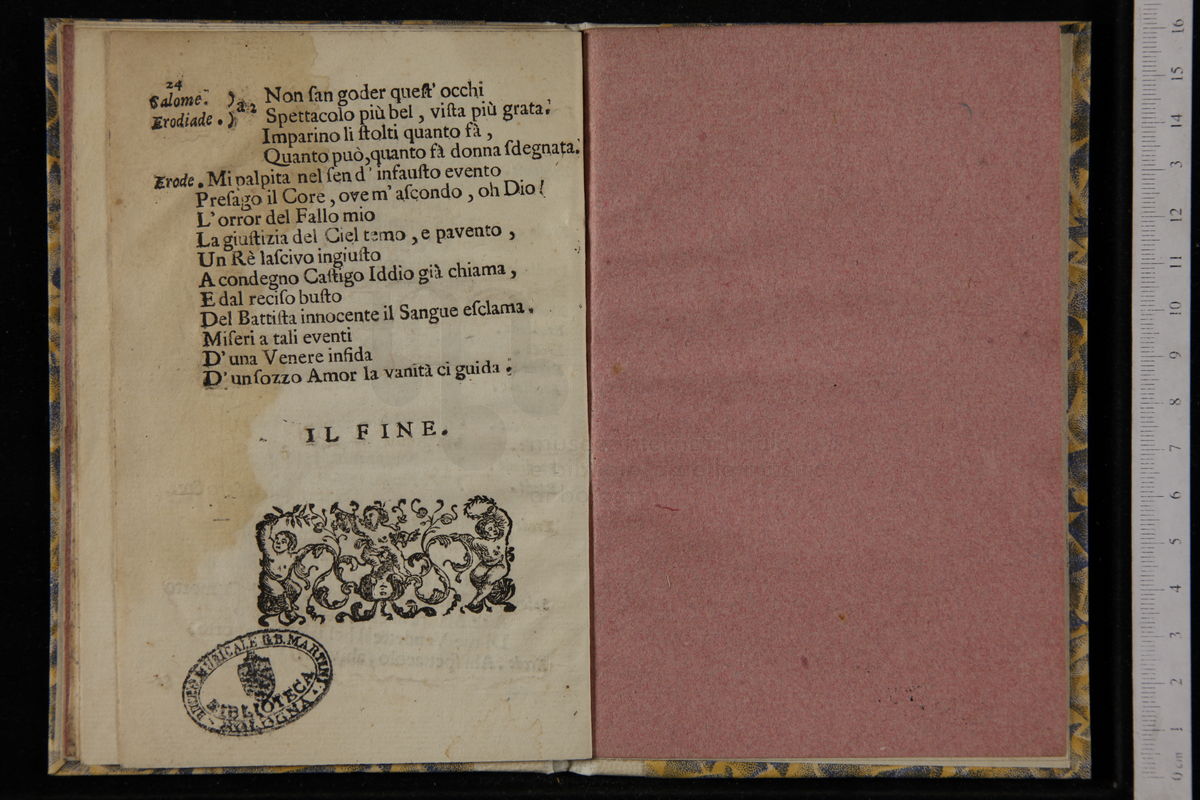 24
Salome. ) à 2 Non ſan goder queſt' occhi
Erodiade. ) Spettacolo più bel, viſta più grata.
Imparino li ſtolti quanto fà,
Quanto può, quanto fà donna ſdegnata.
Erode. Mi palpita nel ſen d' infauſto evento
Preſago il Core, ove m' aſcondo, oh Dio!
L' orror del Fallo mio
La giuſtizia del Ciel temo, e pavento,
Un Rè laſcivo ingiuſto
A condegno Caſtigo Iddio già chiama,
E dal reciſo buſto
Del Battiſta innocente il Sangue eſclama.
Miſeri a tali eventi
D' una Venere infida
D' un ſozzo Amor la vanità ci guida.
IL FINE.
MUSICALE G.B. MARTINI
BIBLIOTECA
BOLOGNA
0 cm 1 2 3 4 5 6 7 8 9 10 11 12 3 14 15 16